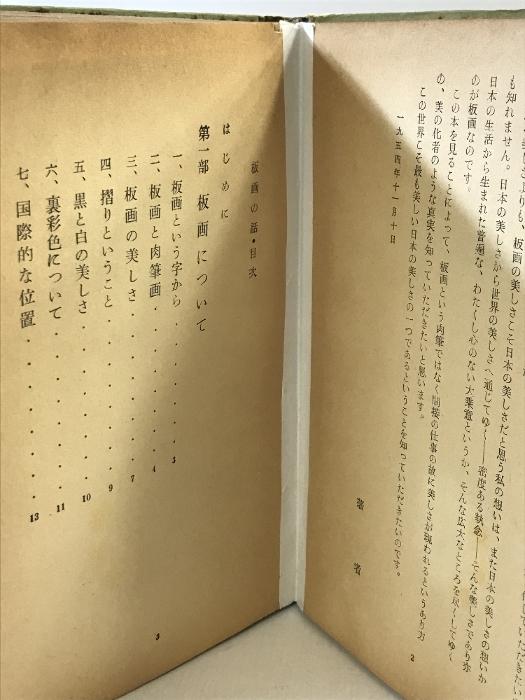 も、板画の美しさこそ日本の美しさだと思う私の想いは、また日本の美しさの想いか
も知れません。日本の美しさから世界の美しさへ通じてゆく──密度ある執念──そんな美しさであり弥
日本の生活から生まれた普遍な、わたくし心のない大乗寛というか、そんな広大なところを尽くしてゆく
のが板画なのです。
この本を見ることによって、板画という肉筆ではなく間接の仕事の故に美しさが現われるというあり方
の、美の化者のような真実を知っていただきたいと思います。
この世界こそ最も美しい日本の美しさの一つであるということを知っていただきたいのです。
一九五四年十一月十日
著者
2
板画の話・目次
はじめに
第一部 板画について
一、板画という字から・・・・・・・・3
二、板画と肉筆画・・・・・・・・4
三、板画の美しさ・・・・・・・・7
四、摺りということ・・・・・・・・9
五、黒と白の美しさ・・・・・・・・10
六、裏彩色について・・・・・・・・11
七、国際的な位置・・・・・・・・13
3